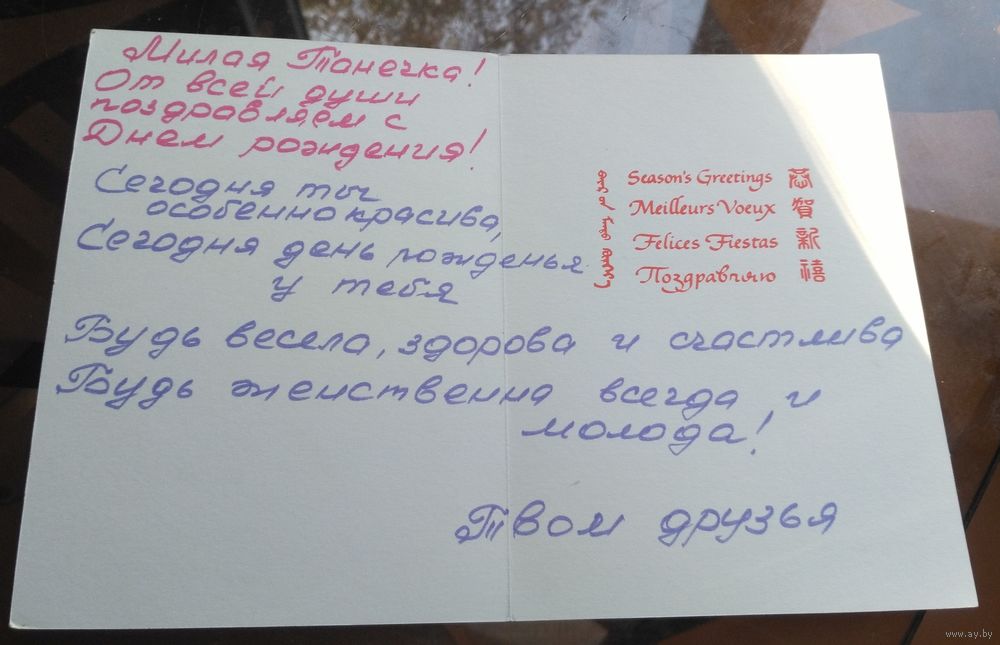 Милая Танечка!
От всей души
поздравляем с
Днем рождения!
Сегодня ты
особенно красива,
Сегодня день рожденья
у тебя
Будь весела, здорова и счастлива
Будь женственна всегда и
молода!
Твои друзья
Season's Greetings
Meilleurs Voeux
Felices Fiestas
Поздравляю
恭
賀
新
禧
www.ay.by